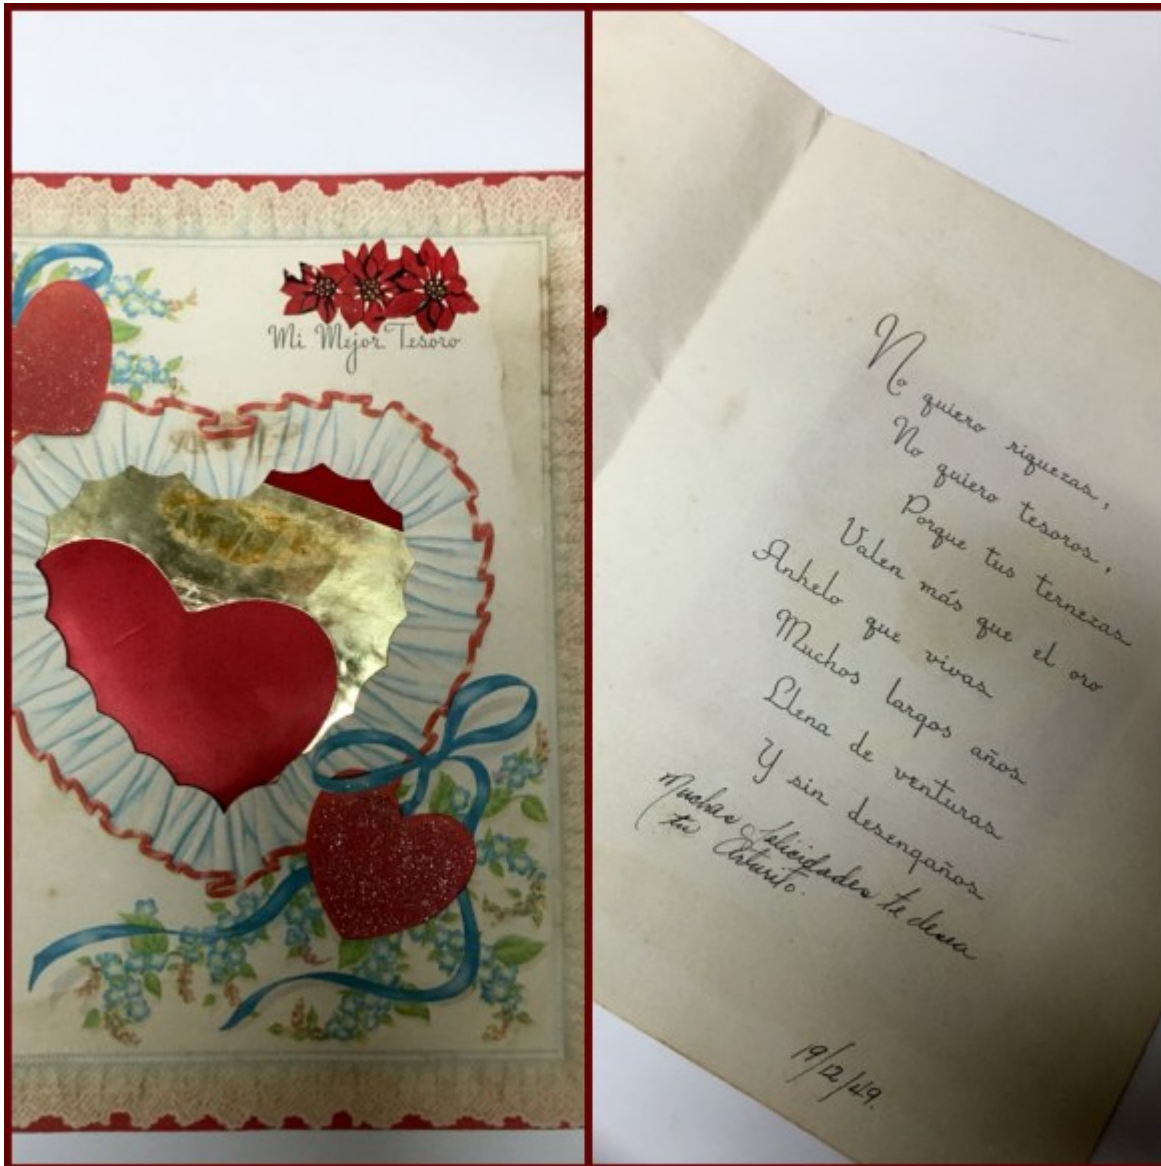 Mi Mejor Tesoro
No quiero riquezas,
No quiero tesoros,
Porque tus ternezas
Valen más que el oro
Anhelo que vivas
Muchos largos años
Llena de venturas
Y sin desengaños
Muchas felicidades te desea
tu Arturito.
19/12/49.